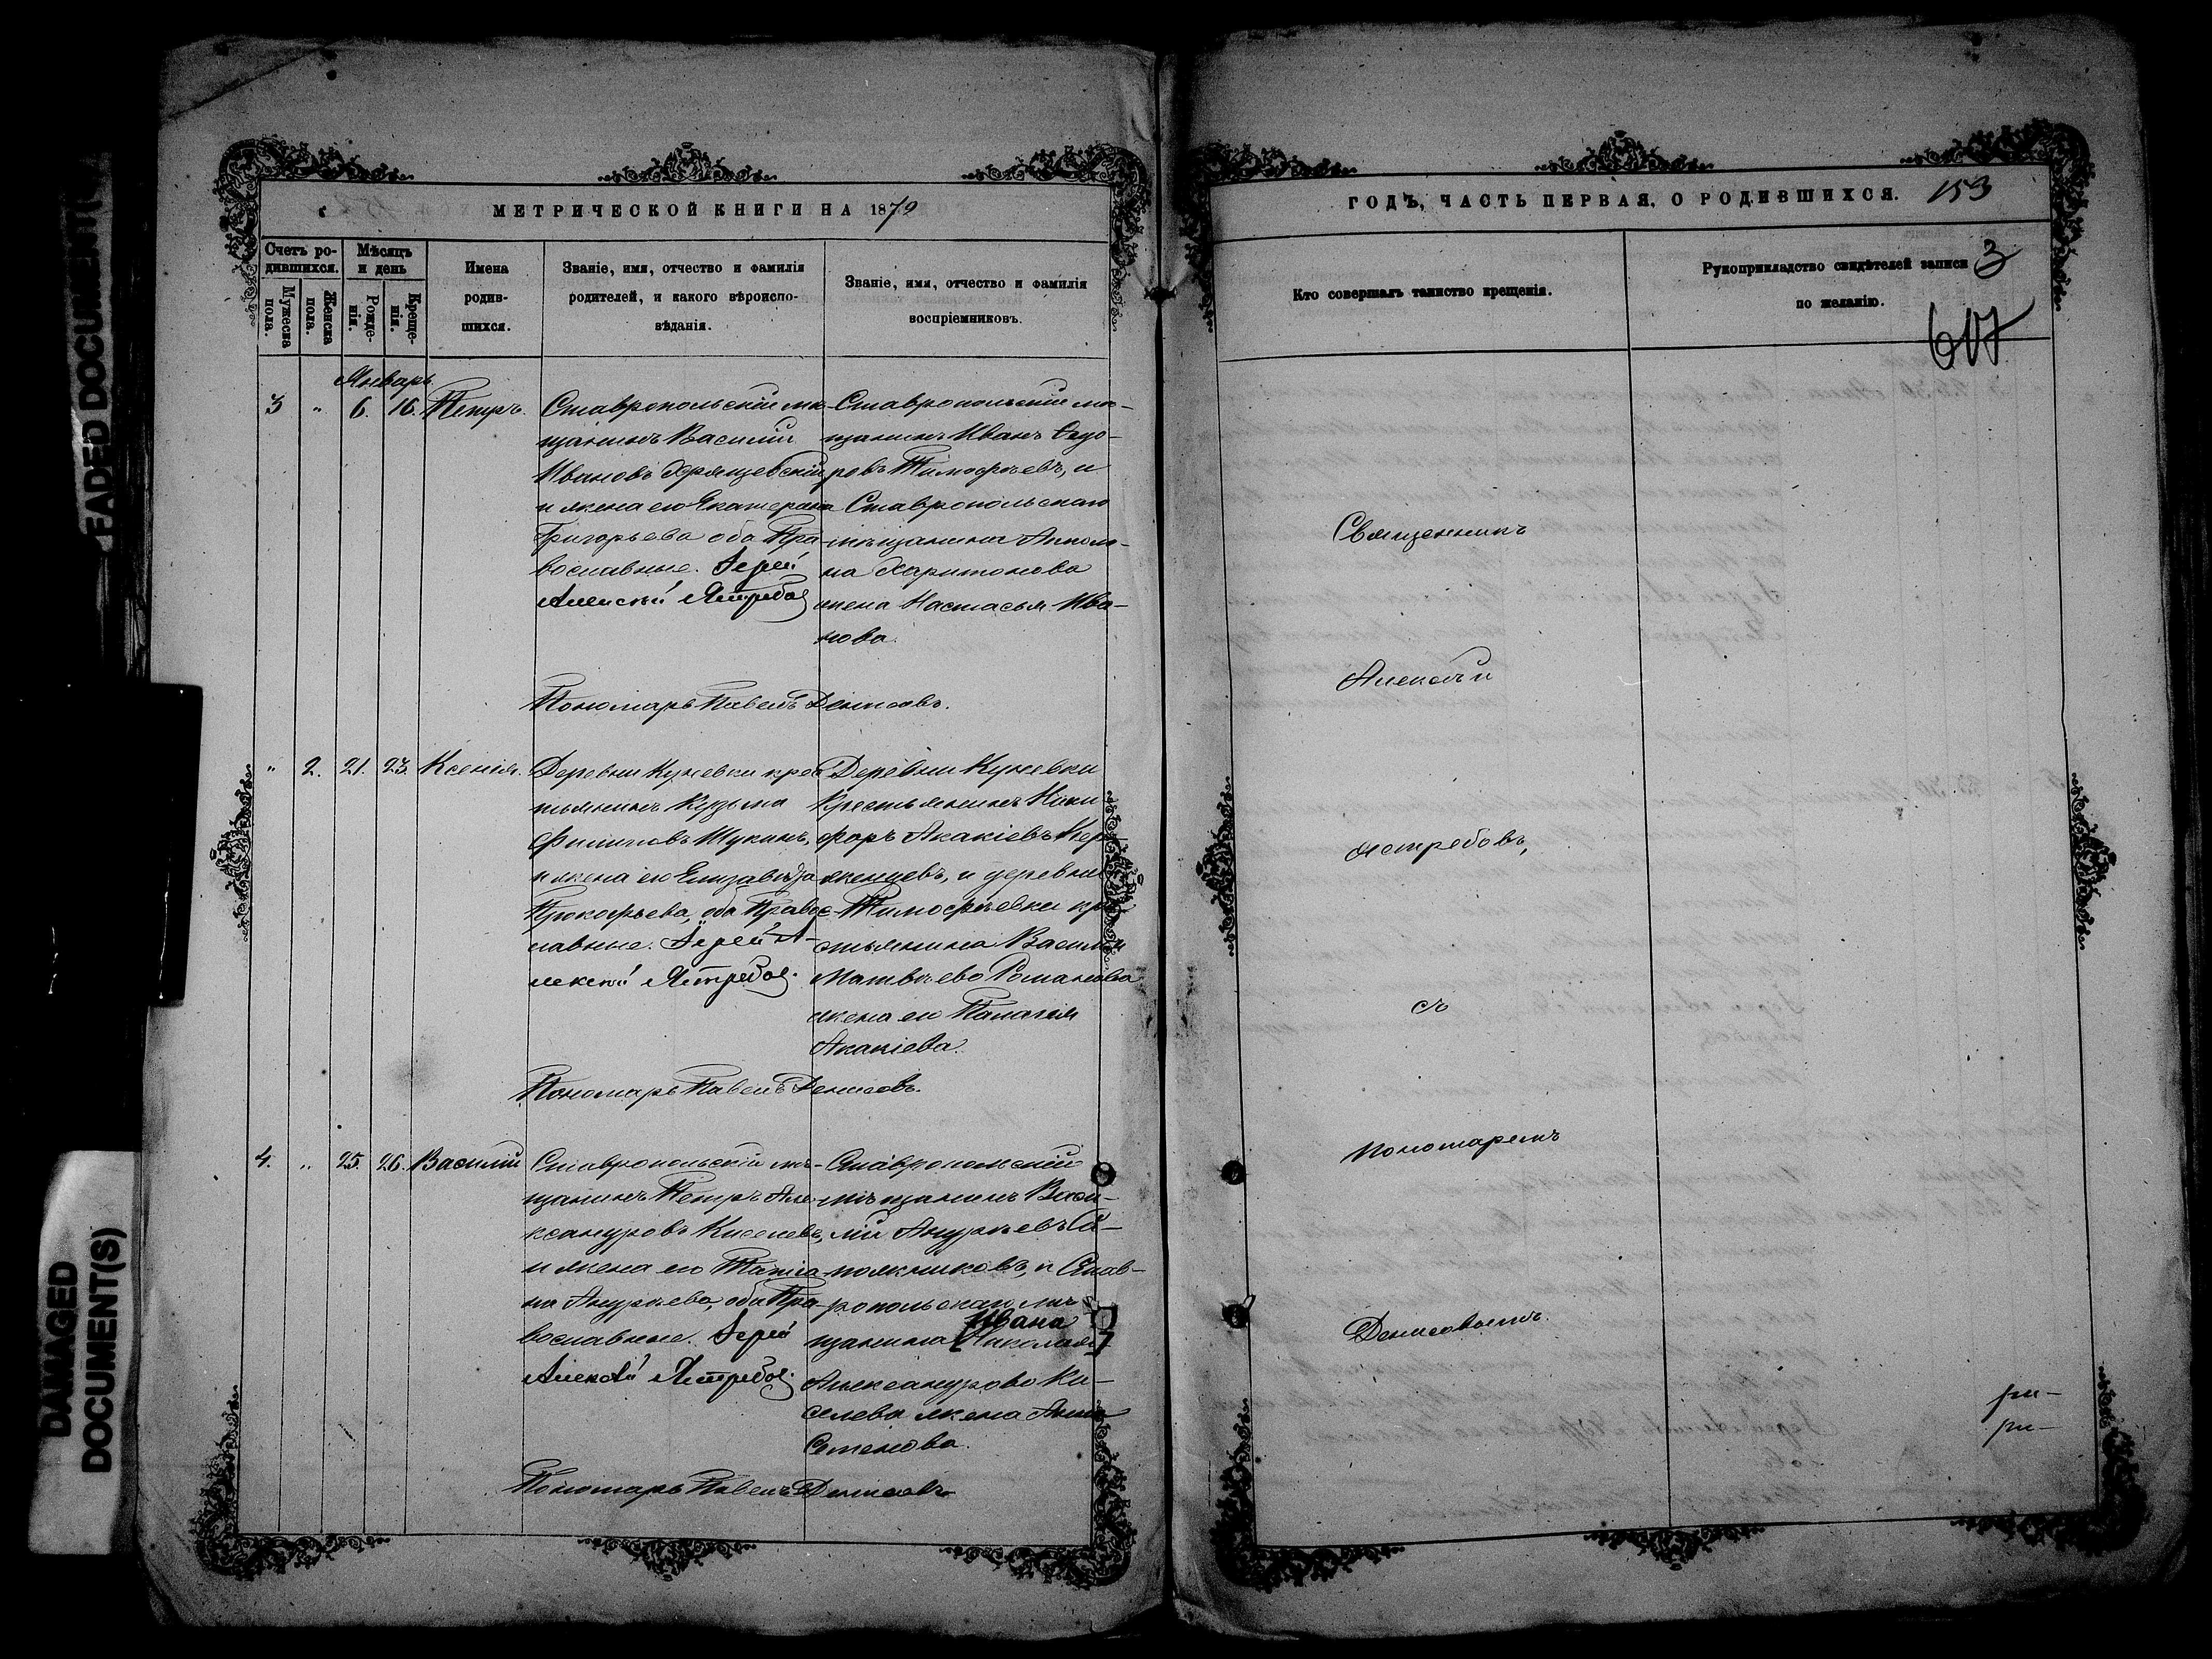 FADED DOCUMENT(
DAMAGED
DOCUMENT(S)
МЕТРИЧЕСКОЙ КНИГИ НА 1879
Счетъ ро-
дившихся.
Мужеска
пола.
Женска
пола.
Мѣсяцъ
и день
Рожде-
нія.
Креще-
нія.
Имена
родив-
шихся.
Званіе, имя, отчество и фамилія
родителей, и какого вѣроиспо-
вѣданія.
Званіе, имя, отчество и фамилія
воспріемниковъ.
Январь
3 " 6. 16. Петръ.
Ставропольскій мѣ-
щанинъ Василій
Ивановъ Хрящевскій
и жена его Екатерина
Григорьева оба Пра-
вославные. Іерей
Алексѣй Ястребовъ
Ставропольскій мѣ-
щанинъ Иванъ Ѳедо-
ровъ Тимофѣевъ, и
Ставропольскаго
мѣщанина
Харитонова
жена Настасья Ива-
нова.
Пономарь Павелъ Денисовъ.
" 2. 21. 23. Ксенія.
Деревни Кунеевки крес
тьянинъ Кузьма
Филиповъ Щукинъ,
и жена его Елизавета
Прокофьева, оба Правос-
лавные. Іерей А-
лексѣй Ястребовъ.
Деревни Кунеевки
Крестьянинъ Ники-
форъ Акакіевъ Кер
женцевъ, и деревни
Тимофѣевки кре
стьянина Василія
Матвѣева Романова
жена его Палагея
Акакіева.
Пономарь Павелъ Денисовъ.
4. " 25. 26. Василій
Ставропольскій мѣ-
щанинъ Петръ Але-
ксандровъ Киселевъ,
и жена его Татiа
на Андреева, оба Пра-
вославные. Іерей
Алексѣй Ястребовъ.
Ставропольскій
мѣщанинъ Васи-
лій Андреевъ Са-
пожниковъ, и Став-
ропольскаго мѣ
Ивана
щанина [Николая]
Александрова Ки-
селева жена Анна
Семенова.
Пономарь Павелъ Денисовъ
ГОДЪ, ЧАСТЬ ПЕРВАЯ, О РОДИВШИХСЯ. 153
Кто совершалъ таинство крещенія.
Рукоприкладство свидѣтелей записи
по желанію.
3
607
Священникъ
Алексѣй
Ястребовъ,
съ
пономаремъ
Денисовымъ.